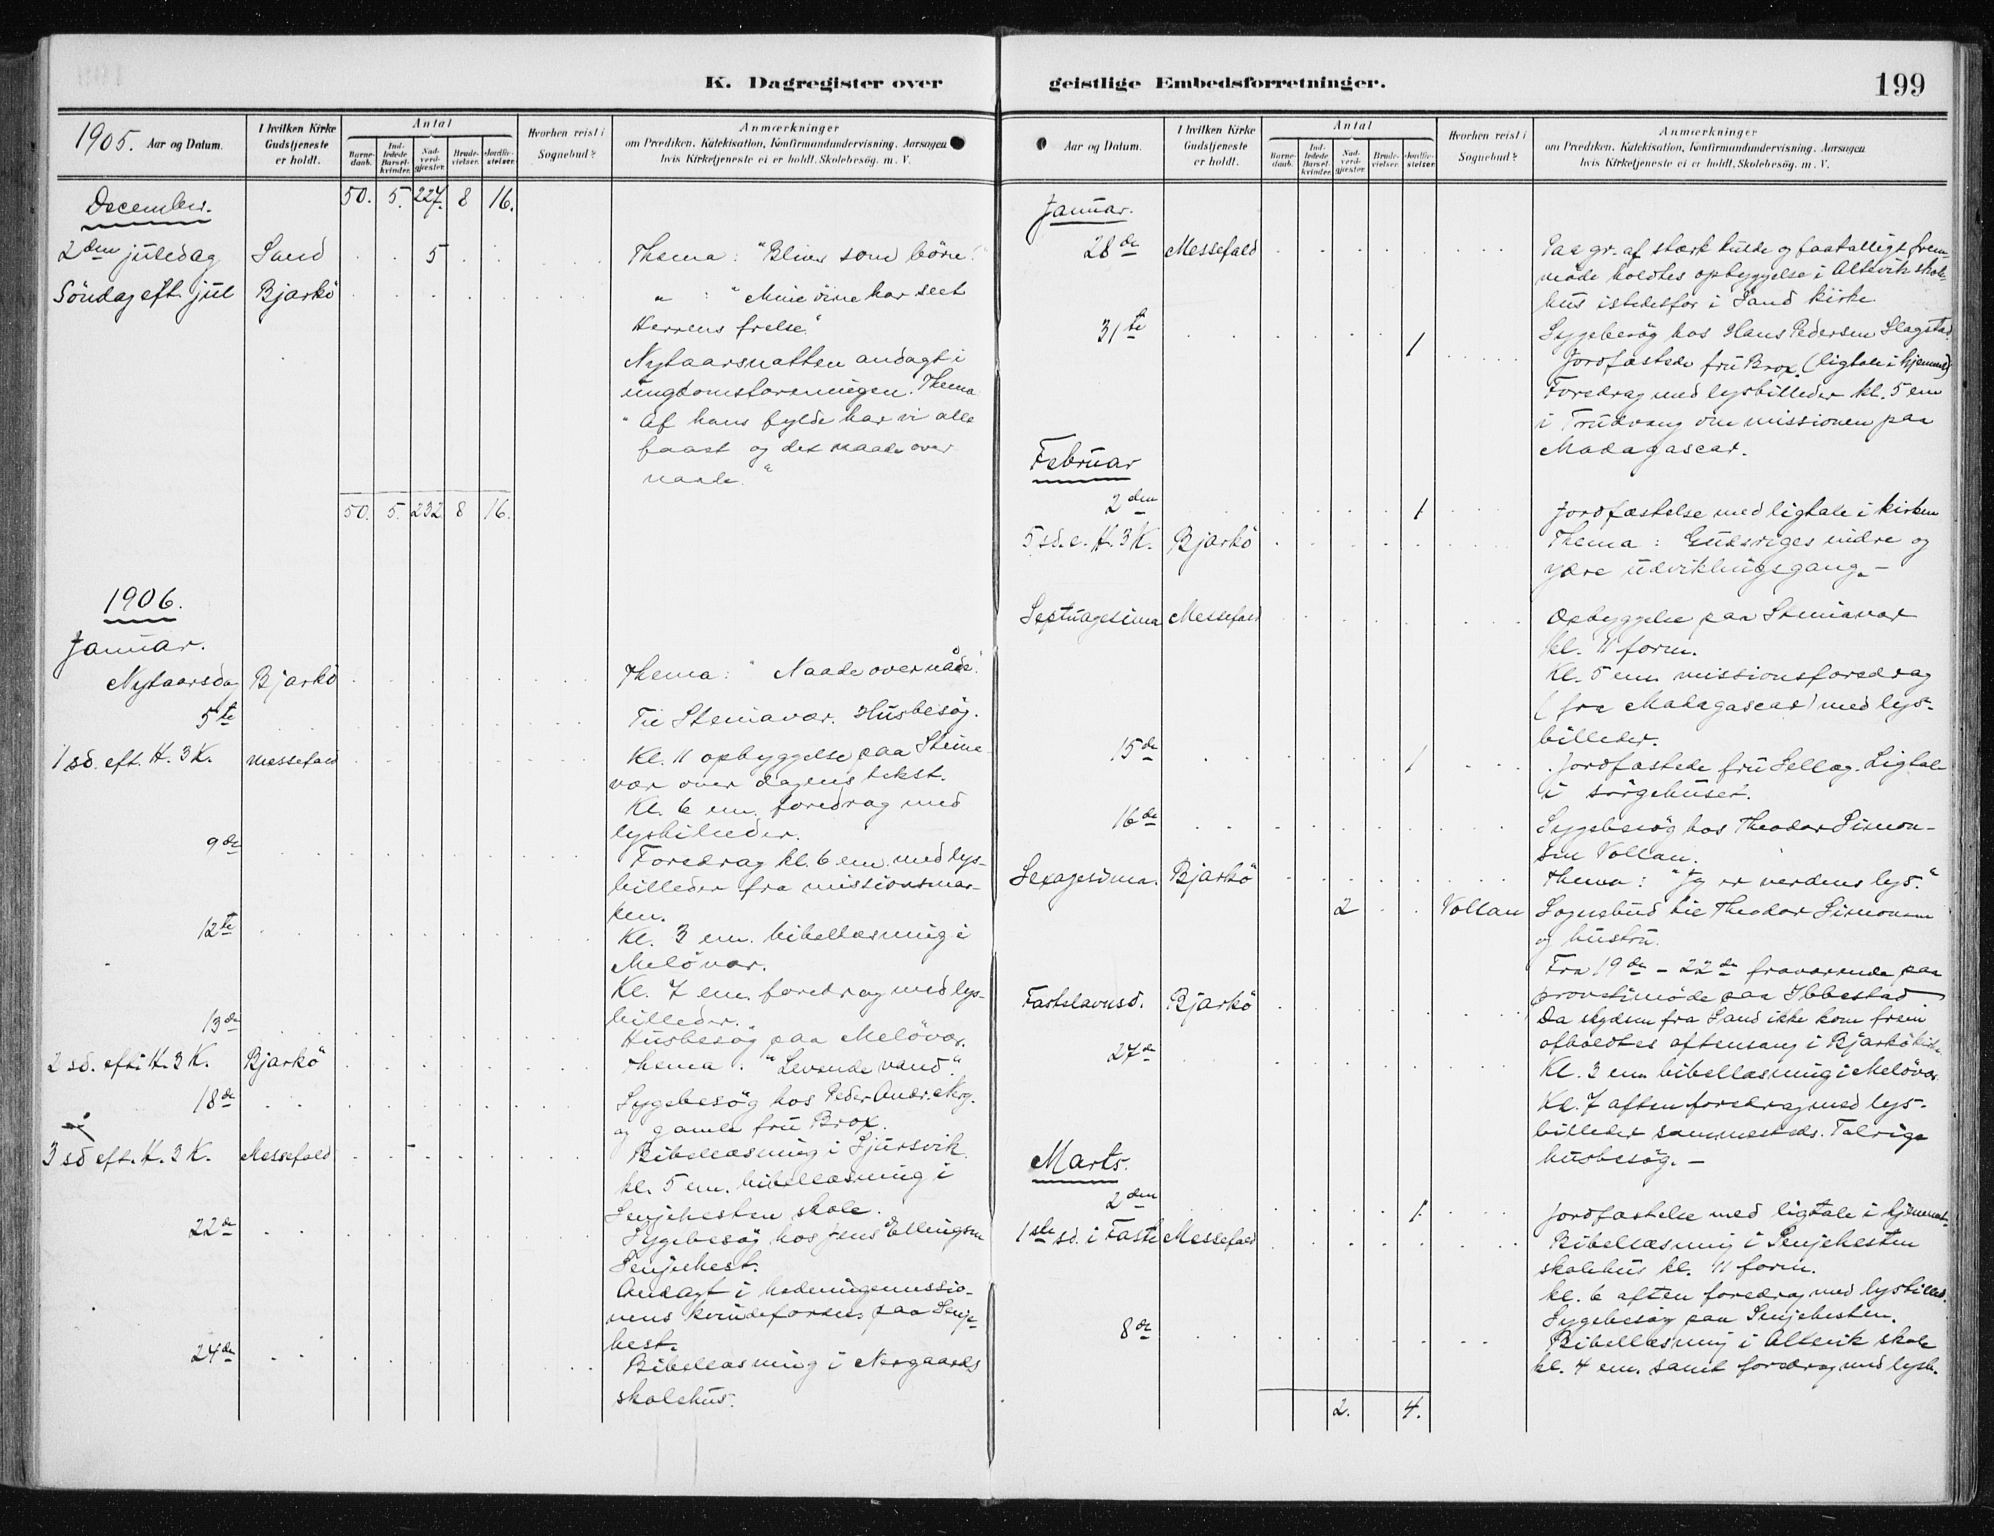 K. Dagregister over
1905. Aar og Datum.
I hvilken Kirke Gudstjeneste er holdt.
Antal
Barnedaab. Indledede Barselkvinder. Nadverdgjester. Brudevielser. Jordfæstelser.
Hvorhen reist i Sognebud?
Anmærkninger
om Prædiken. Katekisation, Konfirmandundervisning. Aarsagen
hvis Kirketjeneste ei er holdt. Skolebesög. m. V.
December. 50. 5. 227. 8 16.
2den juledag Sand 5 Thema: "Bliver som börn!"
Söndag eft. jul Bjarkö " : "Mine öine har seet
Herrens frelse."
Nytaarsnatten andagt i
ungdomsforeningen. Thema
"Af hans fylde har vi alle
faaet og det naade over
naade."
50. 5. 232 8 16.
1906.
Januar.
Nytaarsdag Bjarkö Thema: "Naade over nåde".
5te Til Steinavær. Husbesög.
1 sd. eft. H. 3 K. Messefald Kl. 11 opbyggelse paa Steina-
vær over dagens tekst.
Kl. 6 em. foredrag med
lysbilleder.
9de Foredrag kl. 6 em. med lys-
billeder fra missionsmar-
ken.
12te Kl. 3 em. bibellæsning i
Melövær.
Kl. 7 em. foredrag med lys-
billeder.
13de Husbesög paa Melövær.
2 sd. eft. H. 3 K. Bjarkö Thema: "Levende vand".
18de Sygebesög hos Peder Andr. Nerg.
og gamle fru Brox.
3 sd eft. H. 3 K. Messefald Bibellæsning i Sjursvik
kl. 5 em. bibellæsning i
Senjehesten skole.
22de Sygebesög hos Jens Ellingsen
Senjehest.
Andagt i hedningemissio-
nens kvindeforen. paa Senje-
hest.
24de Bibellæsning i Nergaards
skolehus.
geistlige Embedsforretninger. 199
Aar og Datum.
I hvilken Kirke Gudstjeneste er holdt.
Antal
Barnedaab. Indledede Barselkvinder. Nadverdgjester. Brudevielser. Jordfæstelser.
Hvorhen reist i Sognebud?
Anmærkninger
om Prædiken. Katekisation, Konfirmandundervisning. Aarsagen
hvis Kirketjeneste ei er holdt. Skolebesög. m. V.
Januar.
28de Messefald Paa gr. af stærk kulde og faatalligt frem-
möde holdtes opbyggelse i Altevik skole-
hus istedesfor i Sand kirke.
31te Sygebesög hos Hans Pedersen Slagstad.
1 Jordfæstede fru Brox. (ligtale i hjemmet)
Foredrag med lysbilleder kl. 5 em
i Trudvang om missionen paa
Madagascar.
Februar
2den 1 Jordfæstelse med ligtale i kirken
5 sd. e. H. 3 K. Bjarkö Thema: Gudsriges indre og
ydre udviklingsgang.-
Septuagesima Messefald Opbyggelse paa Steinavær
kl. 11 form.
Kl. 5 em. missionsforedrag
(fra Madagascar) med lys-
billeder.
15de 1 Jordfæstede fru Selløg. Ligtale
i sörgehuset.
16de Sygebesög hos Theodor Simon-
sen Vollan.
Sexagesima. Bjarkö Thema: "Jeg er verdens lys."
2 Vollan Sognebud til Theodor Simonsen
og hustru.
Fra 19de - 22de fraværende paa
provstimöde paa Ibbestad
Fastelavnsd. Bjarkö Da skydsen fra Sand ikke kom frem
afholdtes aftensang i Bjarkö kirke.
27de Kl. 3 em. bibellæsning i Melövær.
Kl. 7 aften foredrag med lys-
billeder sammesteds. Talrige
husbesög.-
Marts.
2den 1. Jordfæstelse med ligtale i hjemmet.
1ste sd. i Faste Messefald Bibellæsning i Senjehesten
skolehus kl. 11 form.
kl. 6 aften foredrag med lysbilled.
Sygebesög paa Senjehesten.
8de Bibellæsning i Altevik skole
kl. 4 em. samt foredrag med lysb.
2. 4.